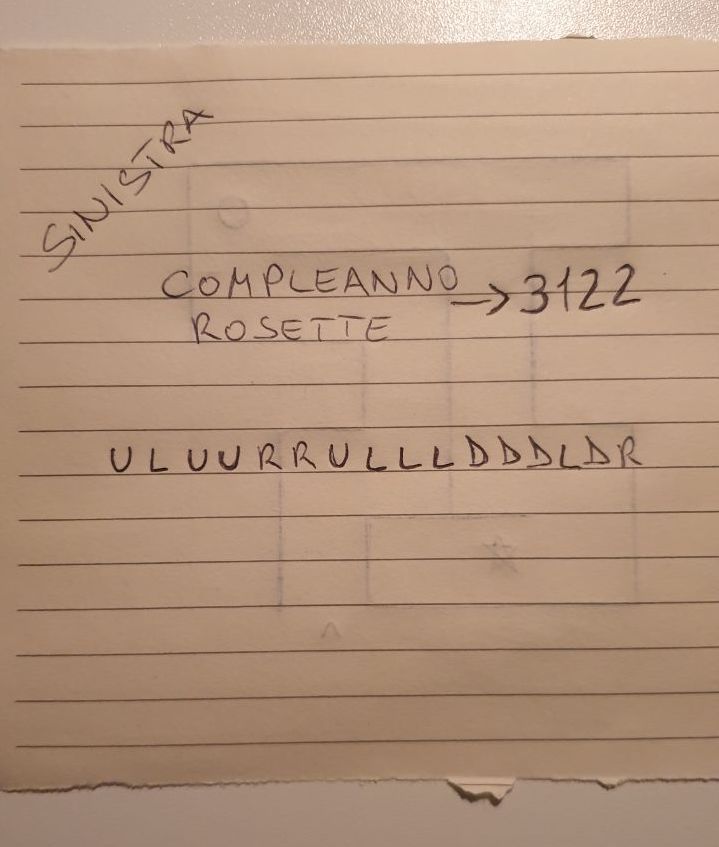 SINISTRA
COMPLEANNO → 3122
ROSETTE
U L U U R R U L L L D D D L D R